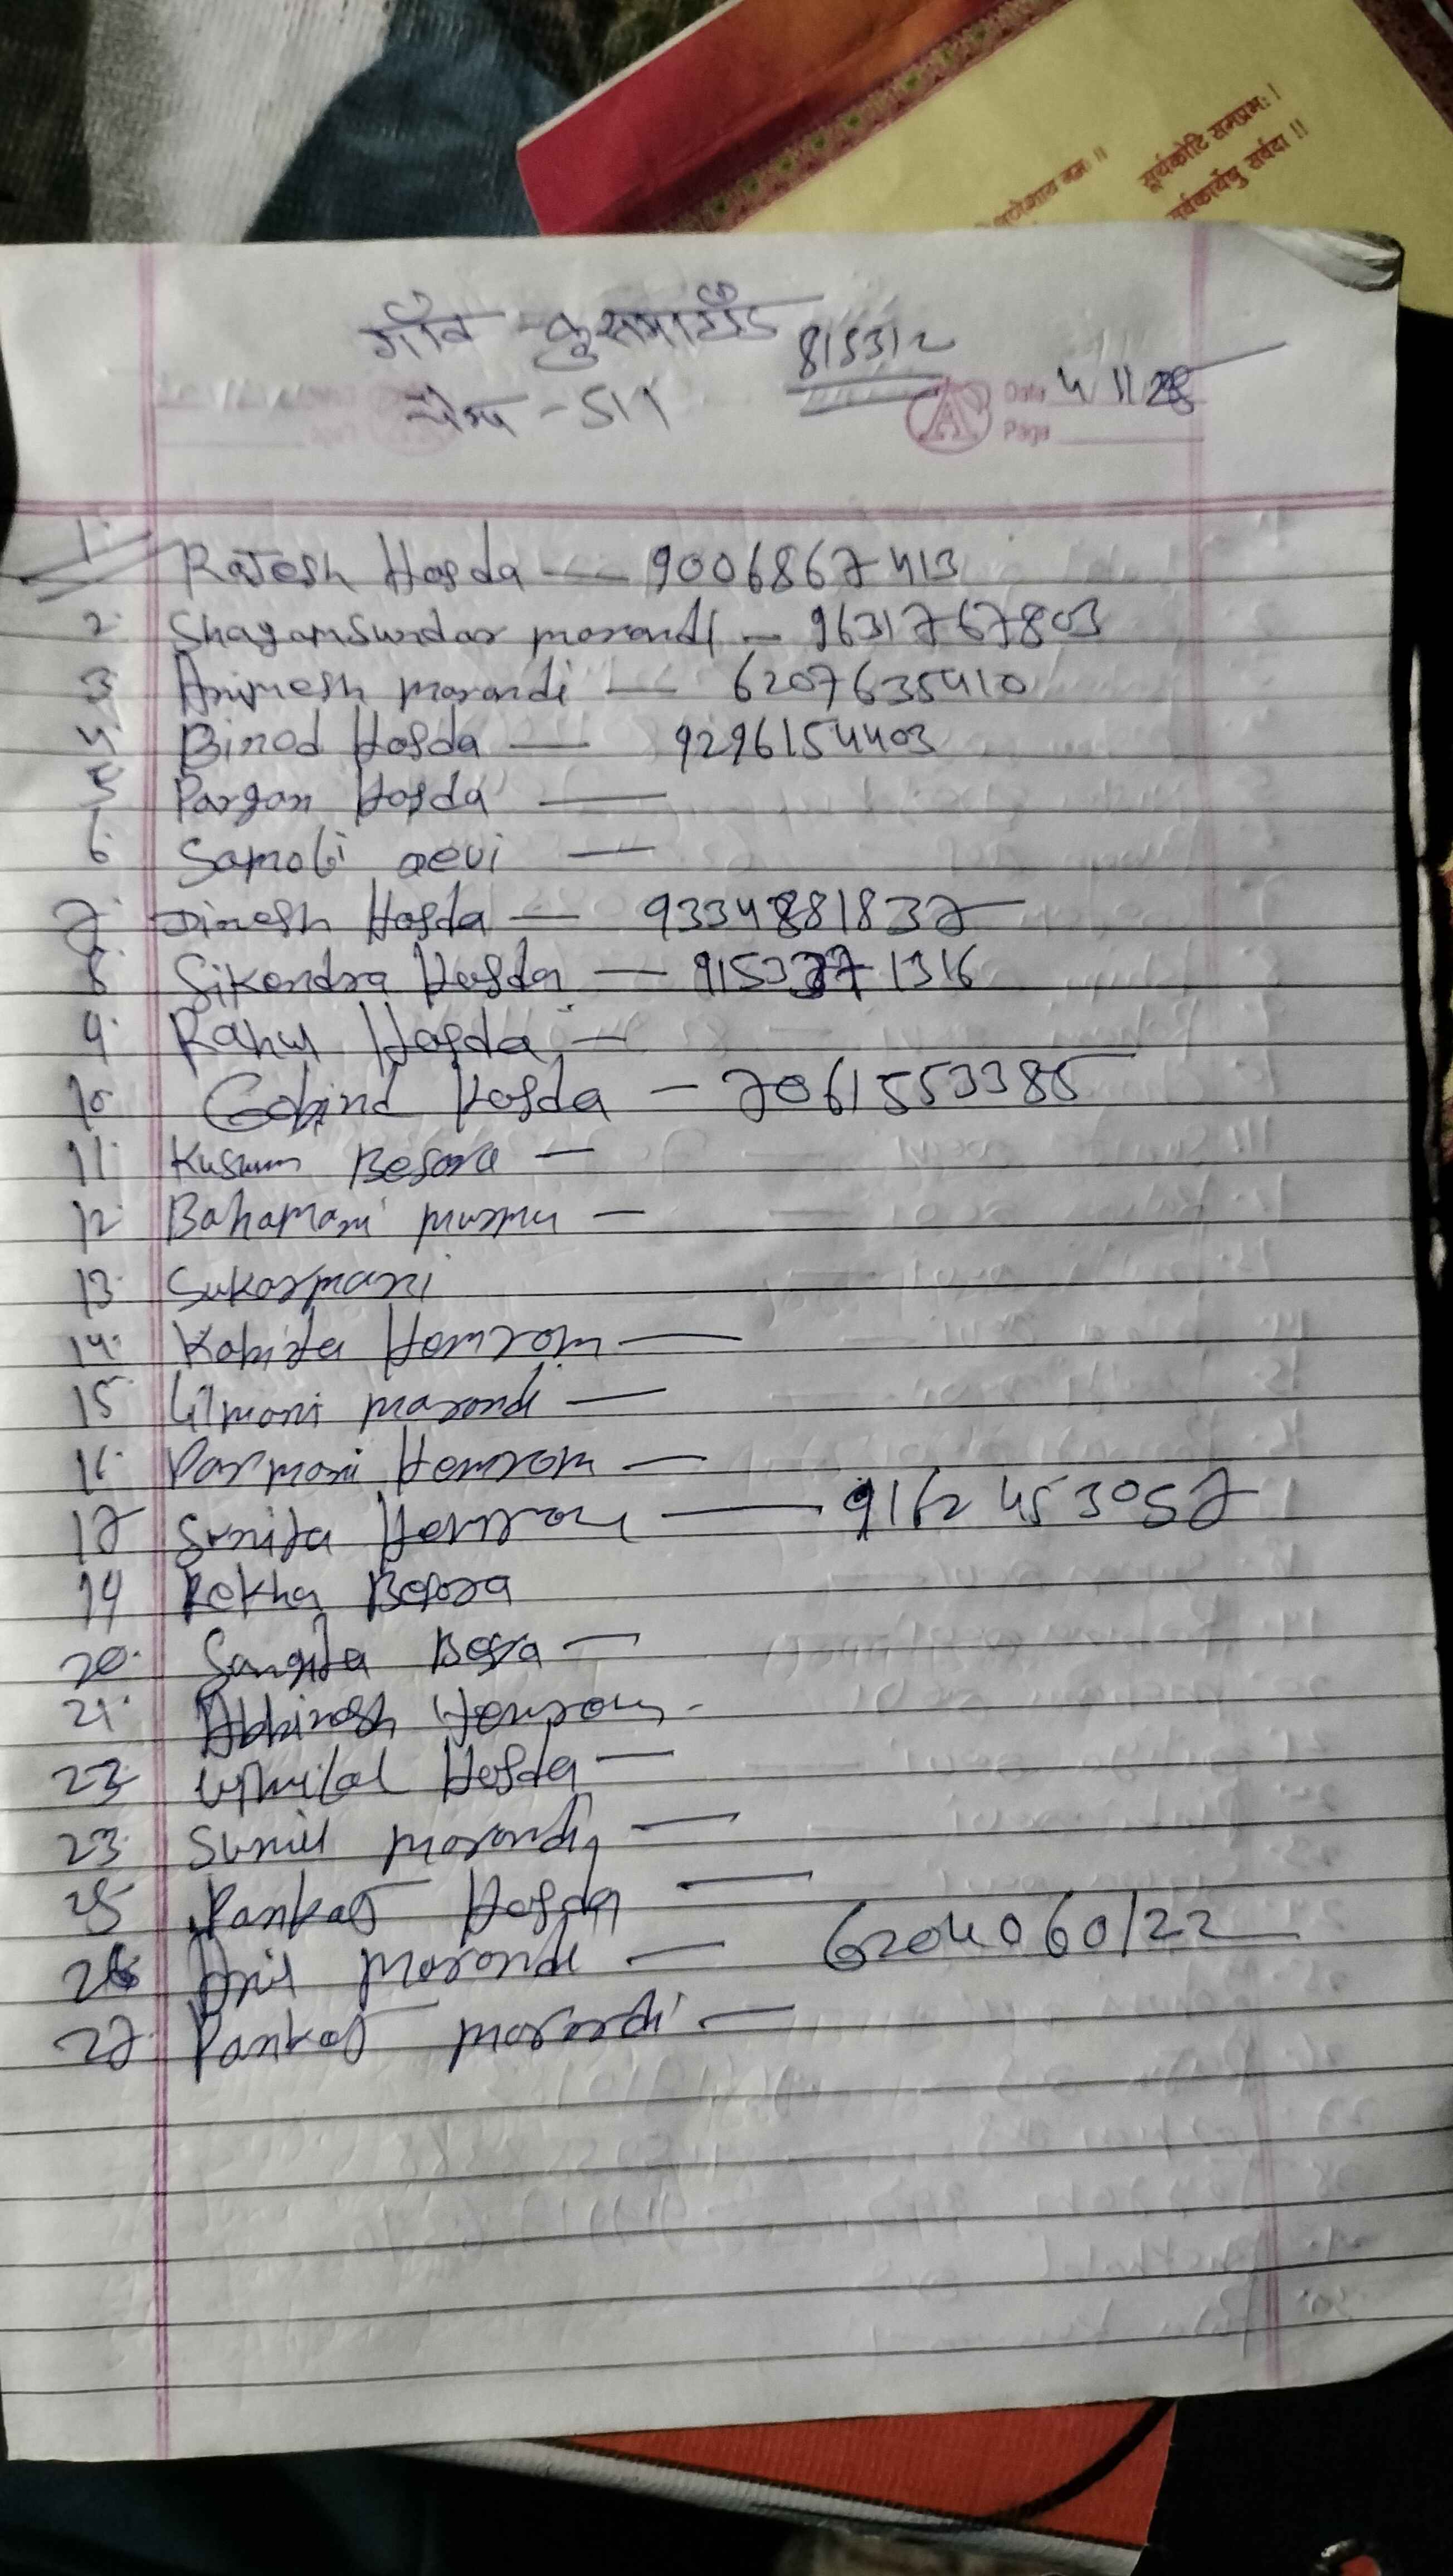 सूर्यकोटि समप्रभः।
गणेशाय नमः॥
सर्वकार्येषु सर्वदा॥
गाँव -
815312
Date 4 11 28
Page
1. Rajesh Hosda — 9006867413
2. Shagamsundar morandi — 9631767803
3 Animesh marandi — 6207635410
4 Binod Hosda — 9296154403
5 Pargan Hosda —
6 Devi —
7. Dinesh Hosda — 9334881837
8 Sikendra Hosda — 1316
9. Rahul Hosda —
10 Gobind Hosda — 7061553385
11. Kusum Besra —
12. Bahamani murmu —
13. Sukarmani
14. Kabita Hemrom —
15 Lilmani marandi —
16. Parmani Hemrom —
17 Sunita Hemrom — 9162453057
19 Rekha Besra
20. Sangita Besra —
21. Abhinash Hemrom -
22. Hosda —
23. Sunil marandi —
25 Pankaj Hosda —
26 Anil marandi — 6204060122
27. Pankaj marandi —